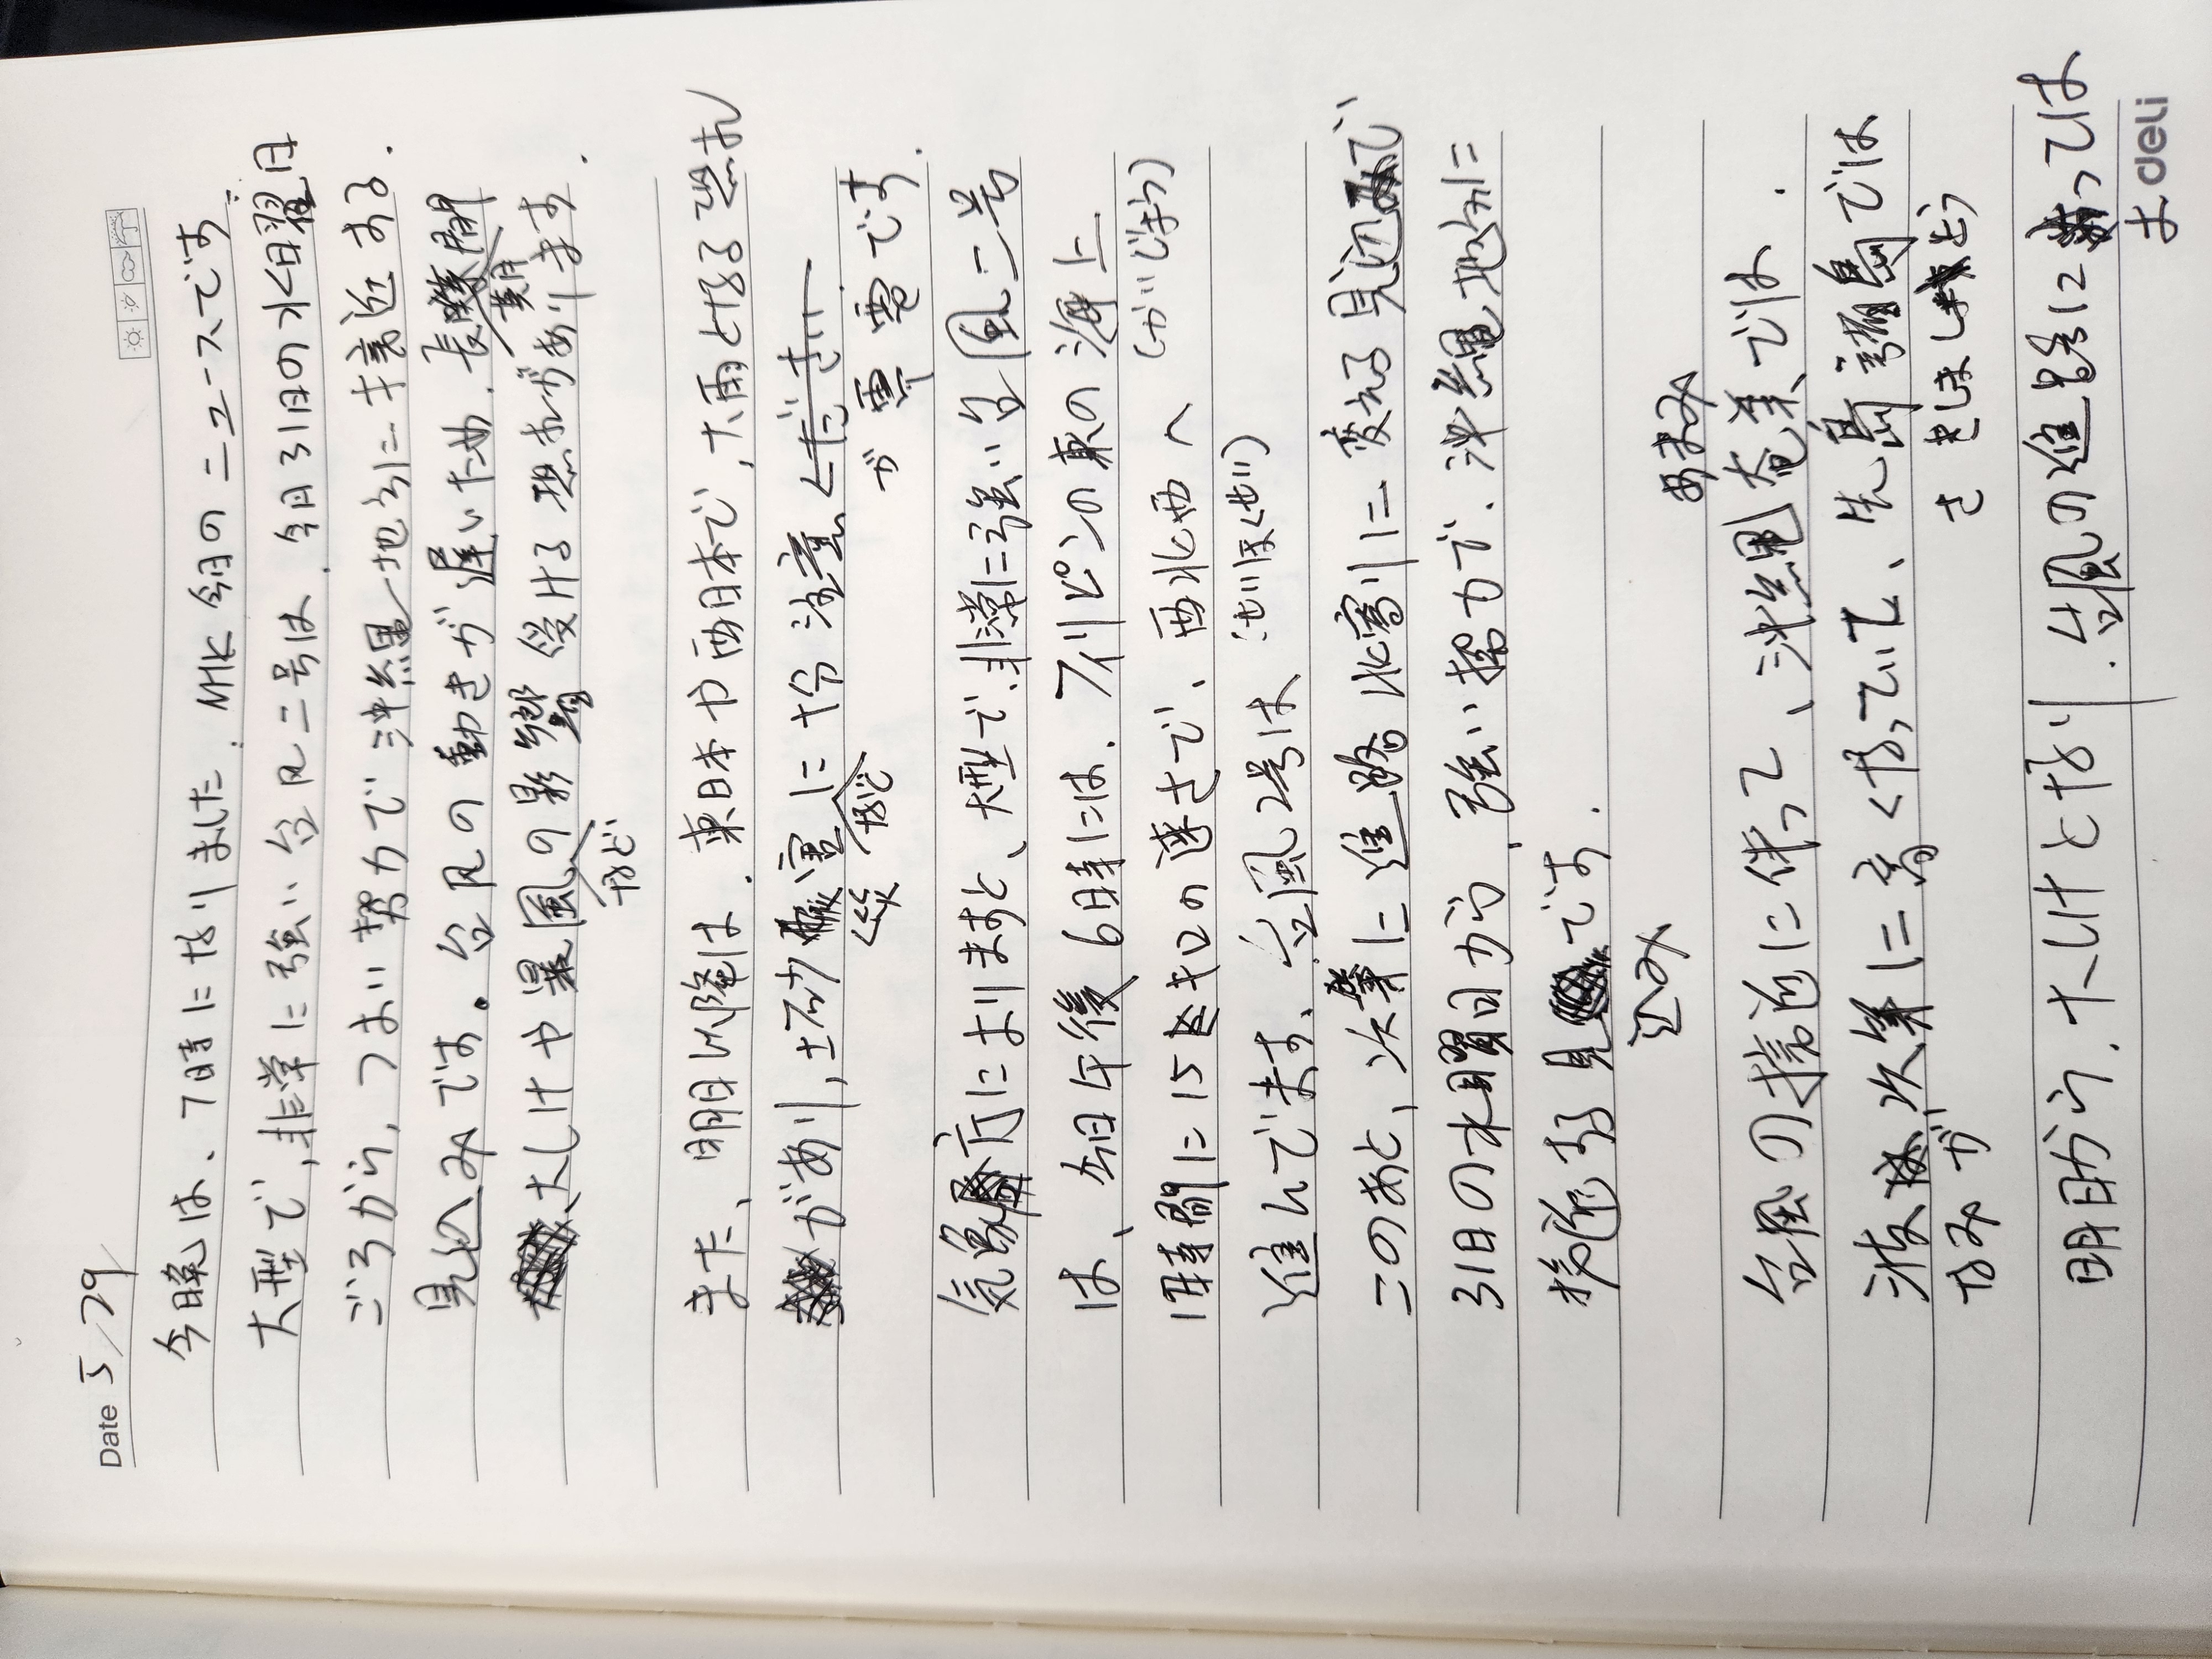 Date 5/29
今晩は、7時になりました。NHK 今日のニュースです。
大型で、非常に強い台風二号は、今月31日の水曜日
ごろから、つよい努力で沖縄地方に接近する
見込みです。台風の動きが遅いため、長期間
大しけや暴風などの影響を受ける恐れがあります。
また、明日以降は、東日本や西日本で、大雨となる恐れ
があり、土砂災害などに十分注意
が必要です。
気象庁によりますと、大型で、非常に強い台風二号
は、今日午後6時には、フィリピンの東の海上
(かいじょう)
1時間に15キロの速さで、西北西へ
(せいほくせい)
進んでます、台風2号は
このあと、次第に進路北寄りに変える見込で
31日の水曜日から、強い勢力で、沖縄地方に
接近する見です。
込み
あまみ
台風の接近に伴って、沖縄奄美では、
波、次第に高くなっていて、先島諸島では
なみが
さきしましょとう
明日から、大しけとなり、台風の進路によっては
よ
deli